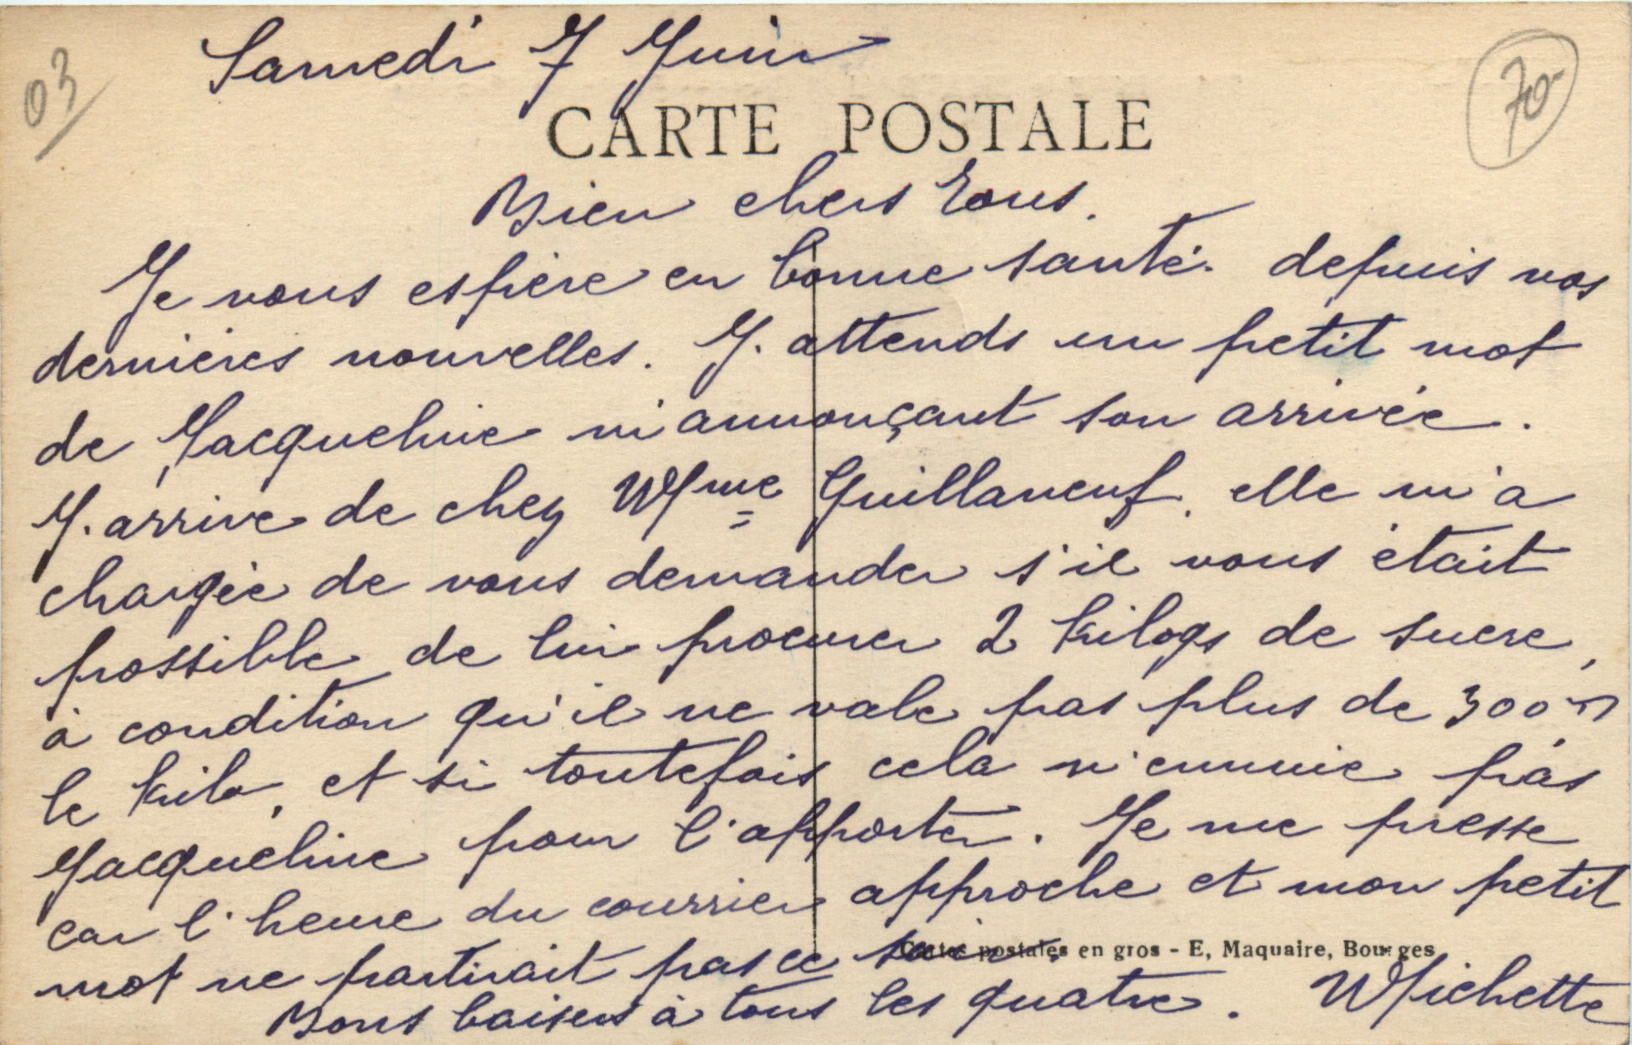 03
Samedi 7 Juin
70-
CARTE POSTALE
Bien chers tous.
Je vous espère en bonne santé. depuis vos
dernières nouvelles. J. attends un petit mot
de Jacqueline m'annonçant son arrivée.
J. arrive de chez Mme Guillaneuf. elle m'a
chargée de vous demander s'il vous était
possible de lui procurer 2 kilogs de sucre,
à condition qu'il ne vale pas plus de 300 frs
le kilo, et si toutefois cela n'ennuie pas
Jacqueline pour l'apporter. Je me presse
car l'heure du courrier approche et mon petit
mot ne partirait pas ce soir.
Cartes postales en gros - E, Maquaire, Bourges
Bons baisers à tous les quatre. Michette